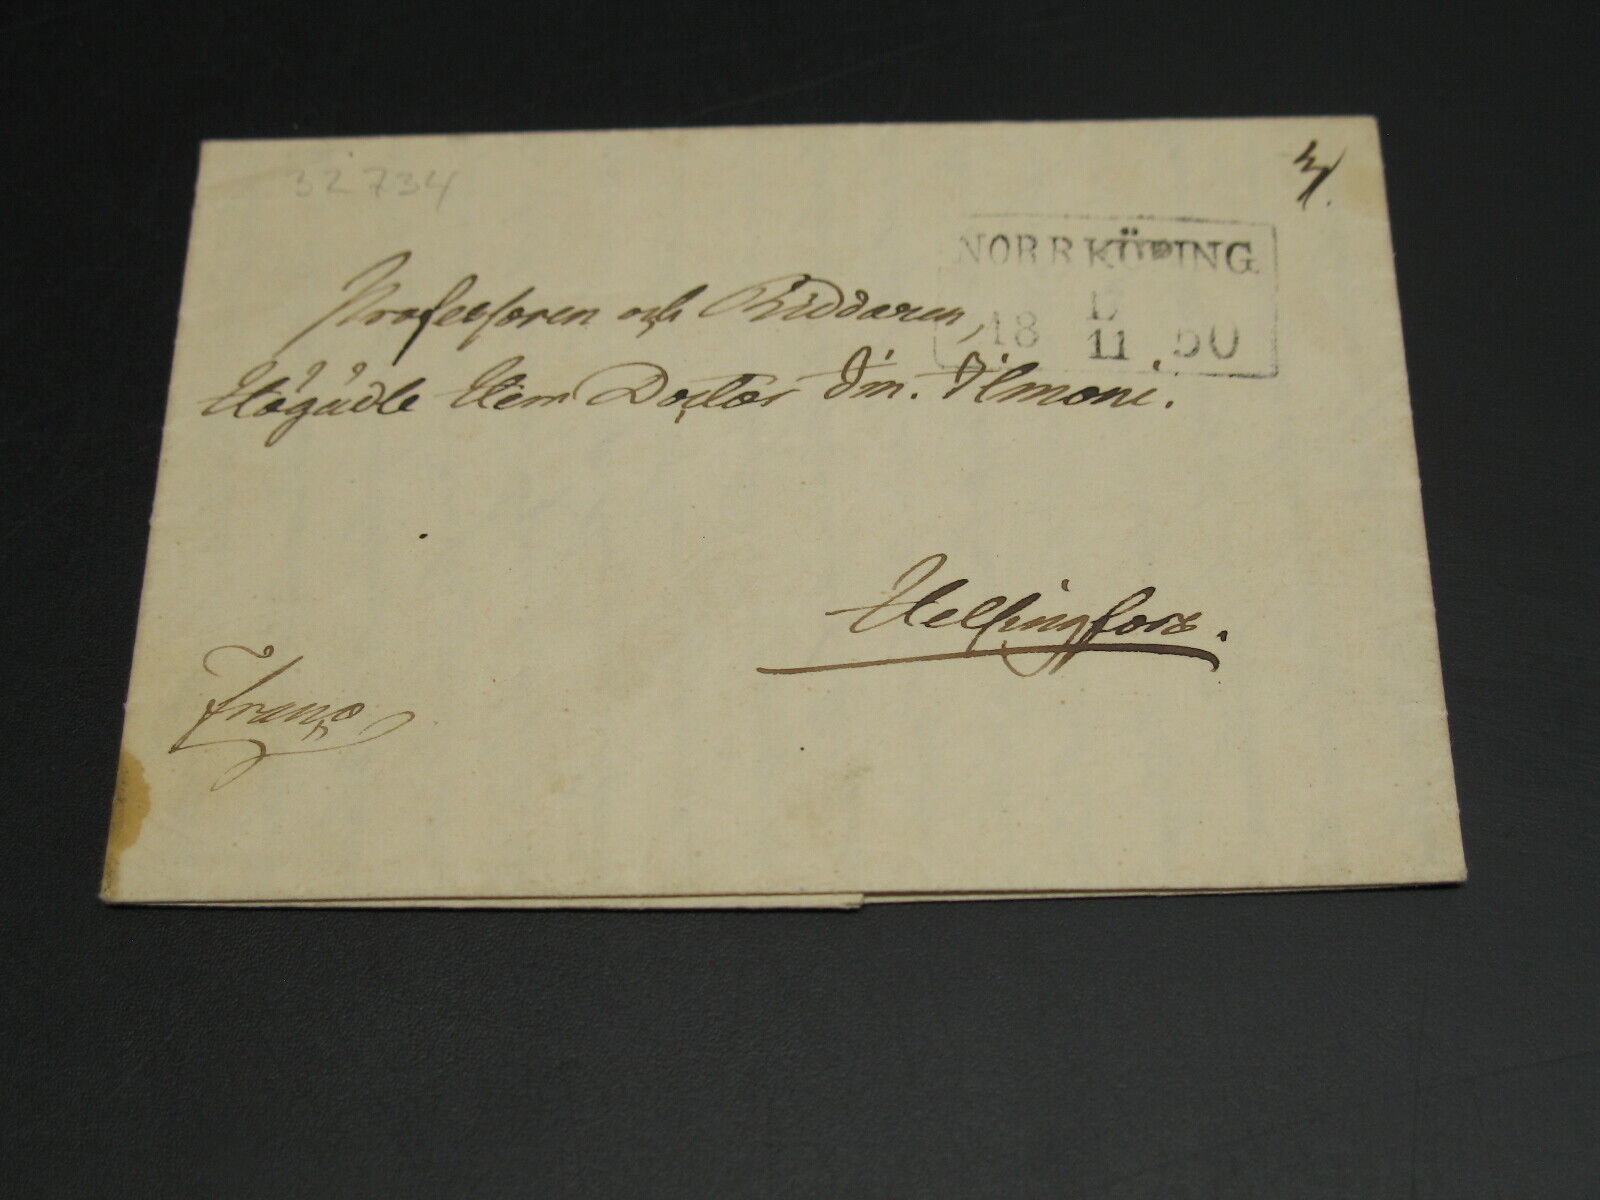 32734
NORRKÖPING
18 11 50
Professoren och Riddaren,
Högädle Herr Doctor Im. Ilmoni.
Helsingfors.
Franco